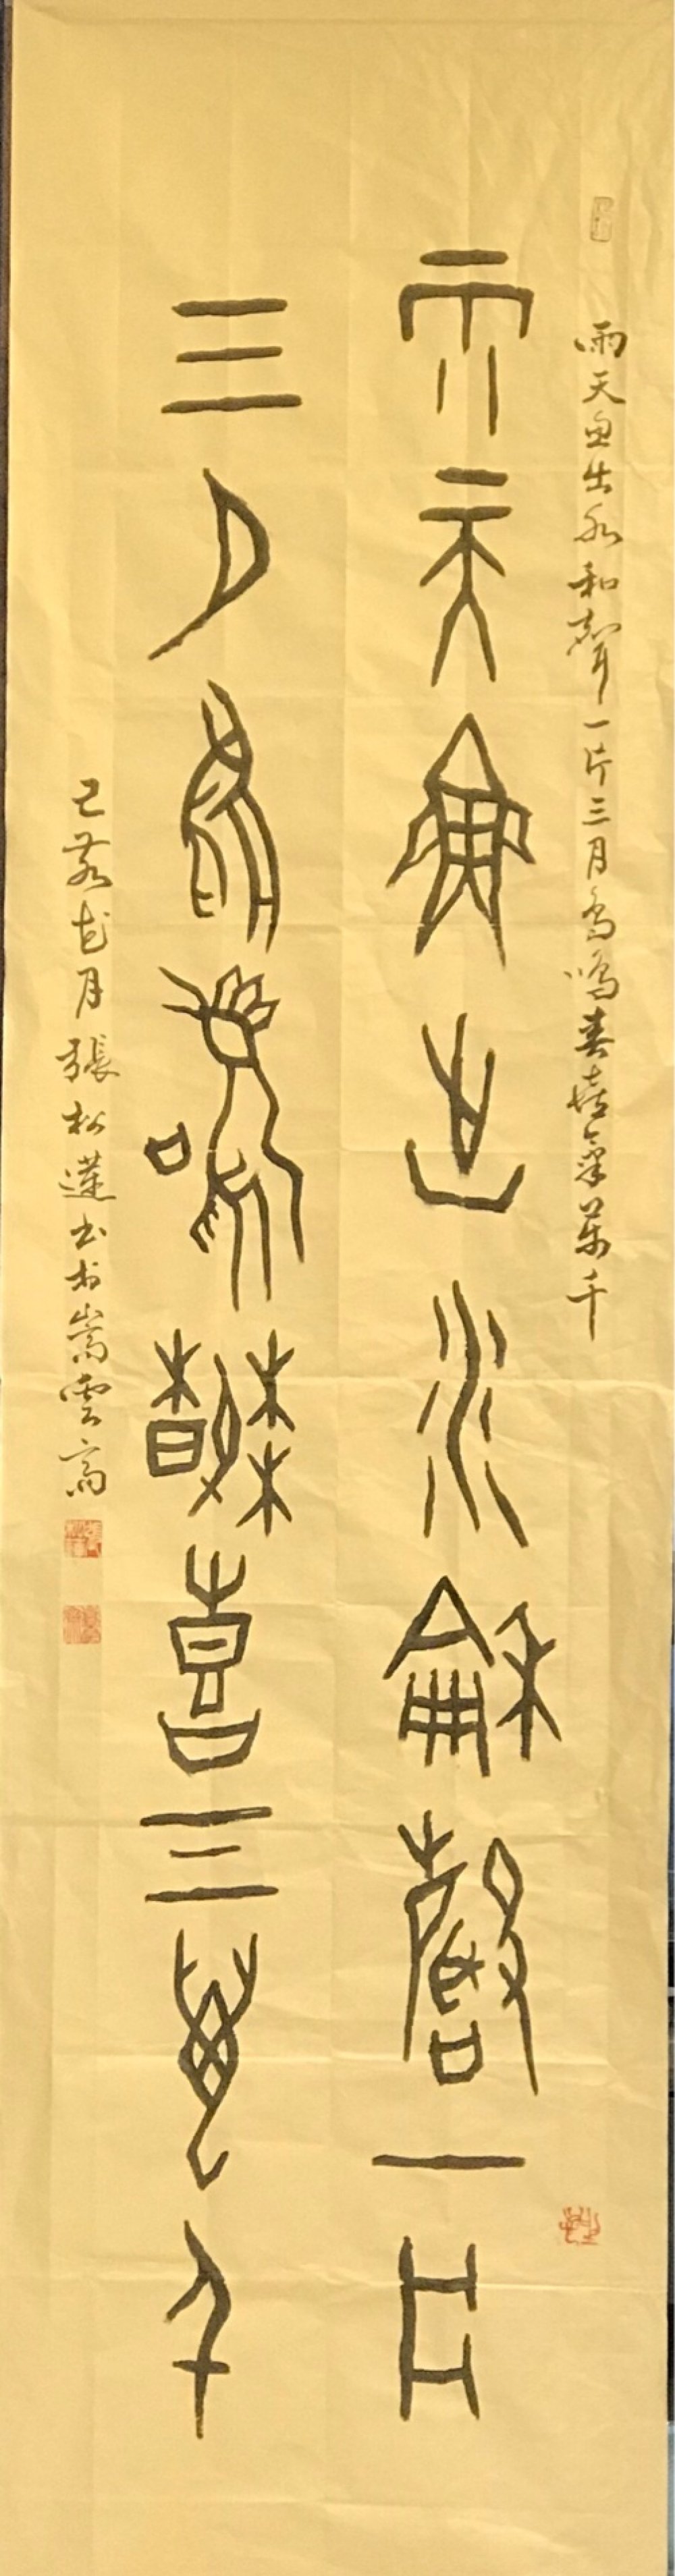 雨天魚出水和聲一片三月鳥鳴春喜氣萬千
雨天魚出水龢聲一片
三月鳥鳴春喜气萬千
己亥花月張松蓮書於嵩雲齋